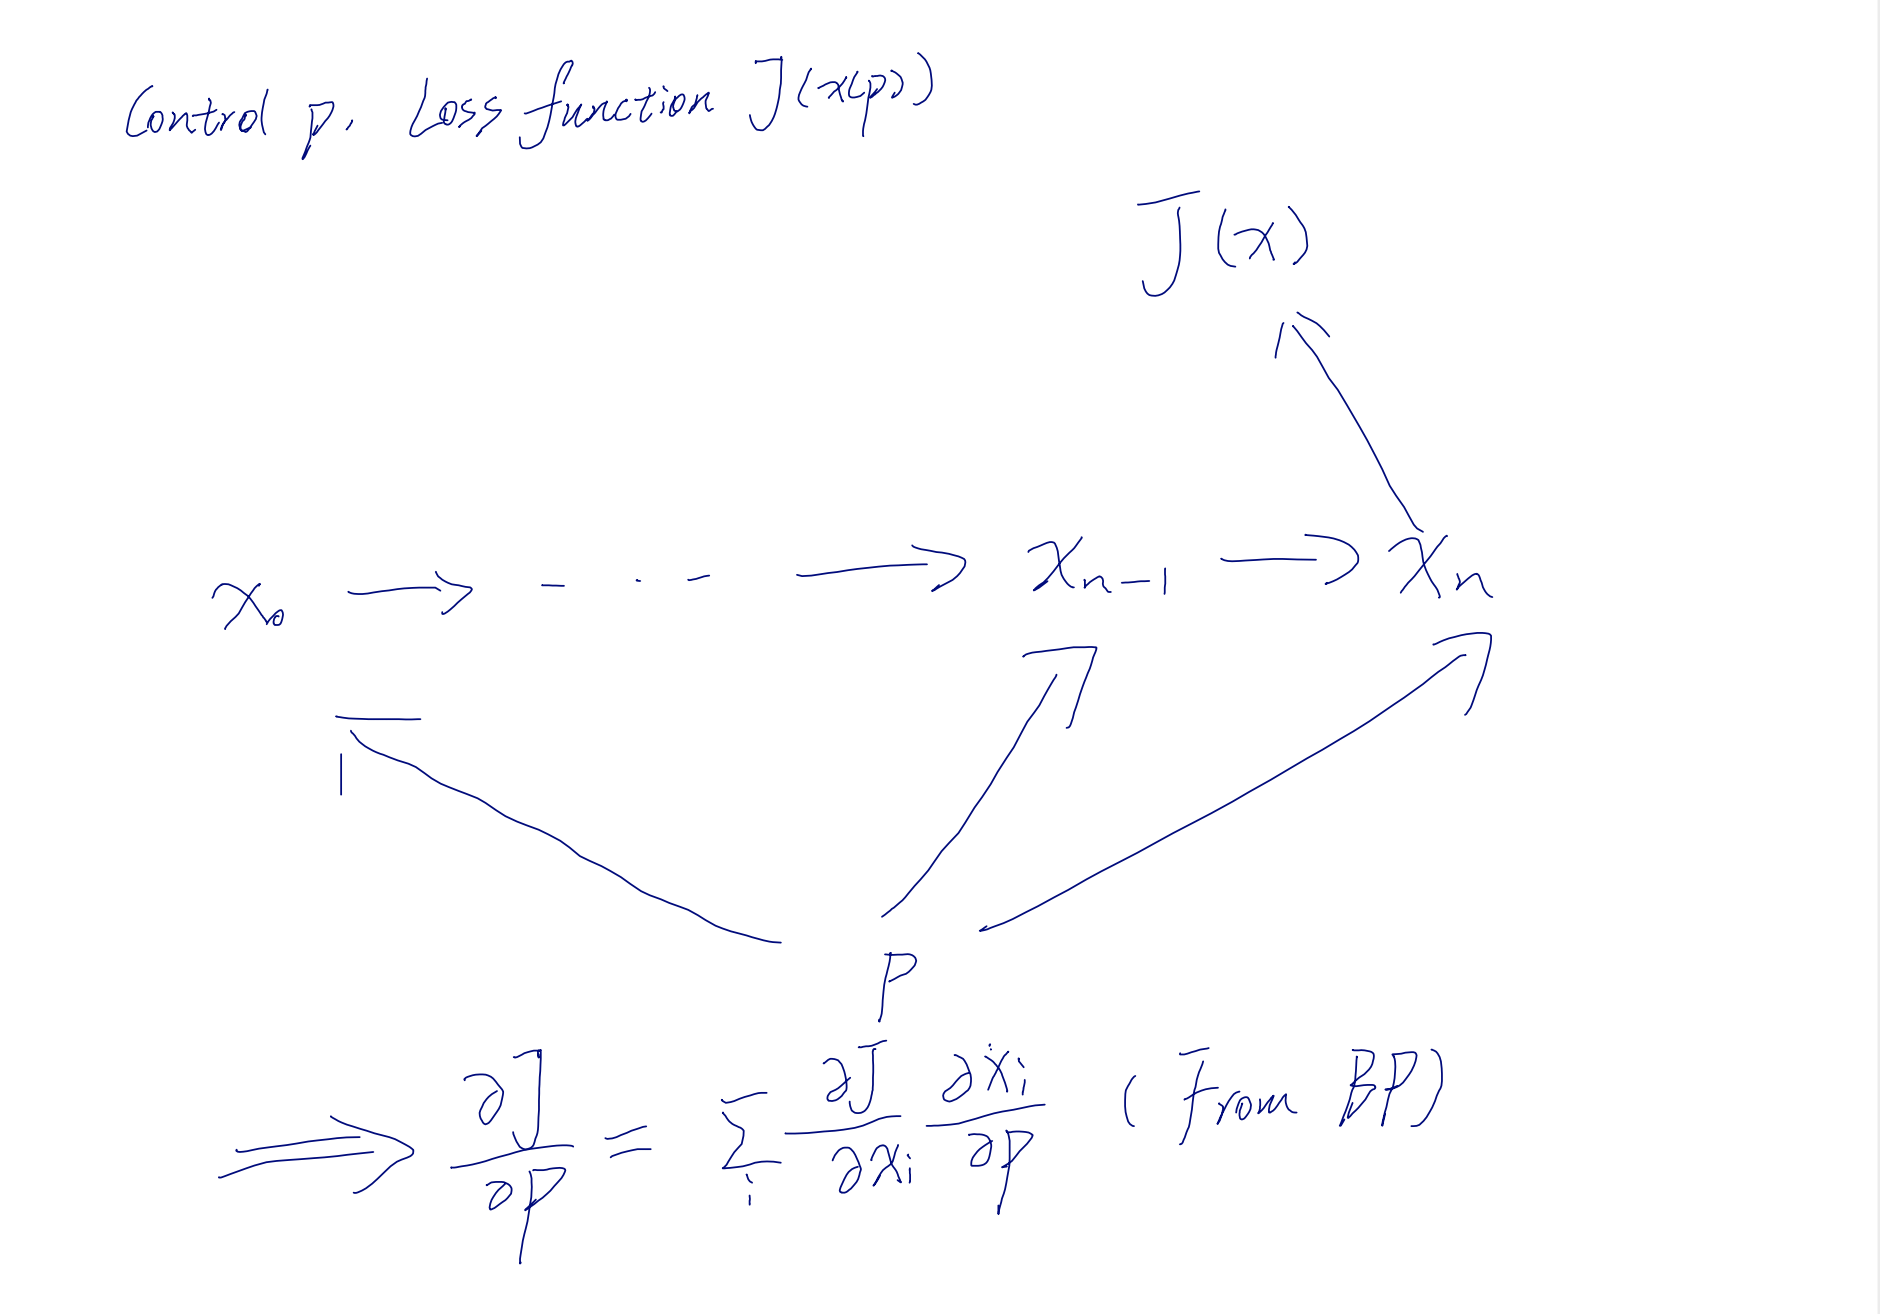 Control p. Loss function J(x(p))
J(x)
x₀ → - · - → xₙ₋₁ → xₙ
P
⟹ ∂J/∂p = Σᵢ ∂J/∂xᵢ ∂xᵢ/∂p (From BP)